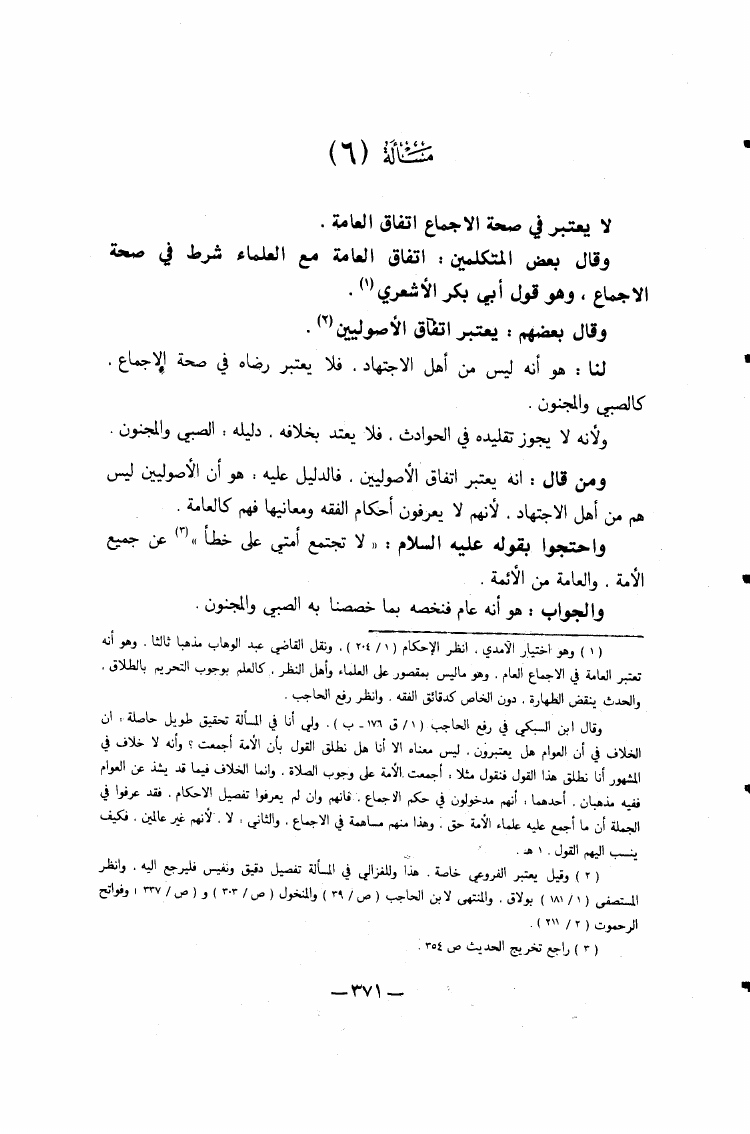 مسألة (٦)
لا يعتبر في صحة الاجماع اتفاق العامة .
وقال بعض المتكلمين : اتفاق العامة مع العلماء شرط في صحة
الاجماع ، وهو قول أبي بكر الأشعري (١) .
وقال بعضهم : يعتبر اتفاق الأصوليين (٢) .
لنا : هو أنه ليس من أهل الاجتهاد . فلا يعتبر رضاه في صحة الإجماع .
كالصبي والمجنون .
ولأنه لا يجوز تقليده في الحوادث . فلا يعتد بخلافه . دليله : الصبي والمجنون .
ومن قال : انه يعتبر اتفاق الأصوليين . فالدليل عليه : هو أن الأصوليين ليس
هم من أهل الاجتهاد . لأنهم لا يعرفون أحكام الفقه ومعانيها فهم كالعامة .
واحتجوا بقوله عليه السلام : « لا تجتمع أمتي على خطأ » (٣) عن جميع
الأمة . والعامة من الأئمة .
والجواب : هو أنه عام فنخصه بما خصصنا به الصبي والمجنون .
( ١ ) وهو اختيار الآمدي . انظر الإحكام ( ١ / ٢٠٤ ) . ونقل القاضي عبد الوهاب مذهبا ثالثا . وهو أنه
تعتبر العامة في الاجماع العام . وهو ماليس بمقصور على العلماء وأهل النظر . كالعلم بوجوب التحريم بالطلاق .
والحدث ينقض الطهارة . دون الخاص كدقائق الفقه . وانظر رفع الحاجب .
وقال ابن السبكي في رفع الحاجب ( ١ / ق ١٧٦ - ب ) . ولي أنا في المسألة تحقيق طويل حاصلة : ان
الخلاف في أن العوام هل يعتبرون . ليس معناه الا أنا هل نطلق القول بأن الأمة أجمعت ؟ وأنه لا خلاف في
المشهور أنا نطلق هذا القول فنقول مثلا : أجمعت الأمة على وجوب الصلاة . وانما الخلاف فيما قد يشذ عن العوام
ففيه مذهبان . أحدهما : أنهم مدخولون في حكم الاجماع . فانهم وان لم يعرفوا تفصيل الاحكام . فقد عرفوا في
الجملة أن ما أجمع عليه علماء الأمة حق . وهذا منهم مساهمة في الاجماع . والثاني : لا . لأنهم غير عالمين . فكيف
ينسب اليهم القول . ١ هـ .
( ٢ ) وقيل يعتبر الفروعي خاصة . هذا وللغزالي في المسألة تفصيل دقيق ونفيس فليرجع اليه . وانظر
المستصفى ( ١ / ١٨١ ) بولاق . والمنتهى لابن الحاجب ( ص / ٣٩ ) والمنخول ( ص / ٣٠٣ ) و ( ص / ٣٣٧ ) وفواتح
الرحموت ( ٢ / ٢١١ ) .
( ٣ ) راجع تخريج الحديث ص ٣٥٤ .
— ٣٧١ —